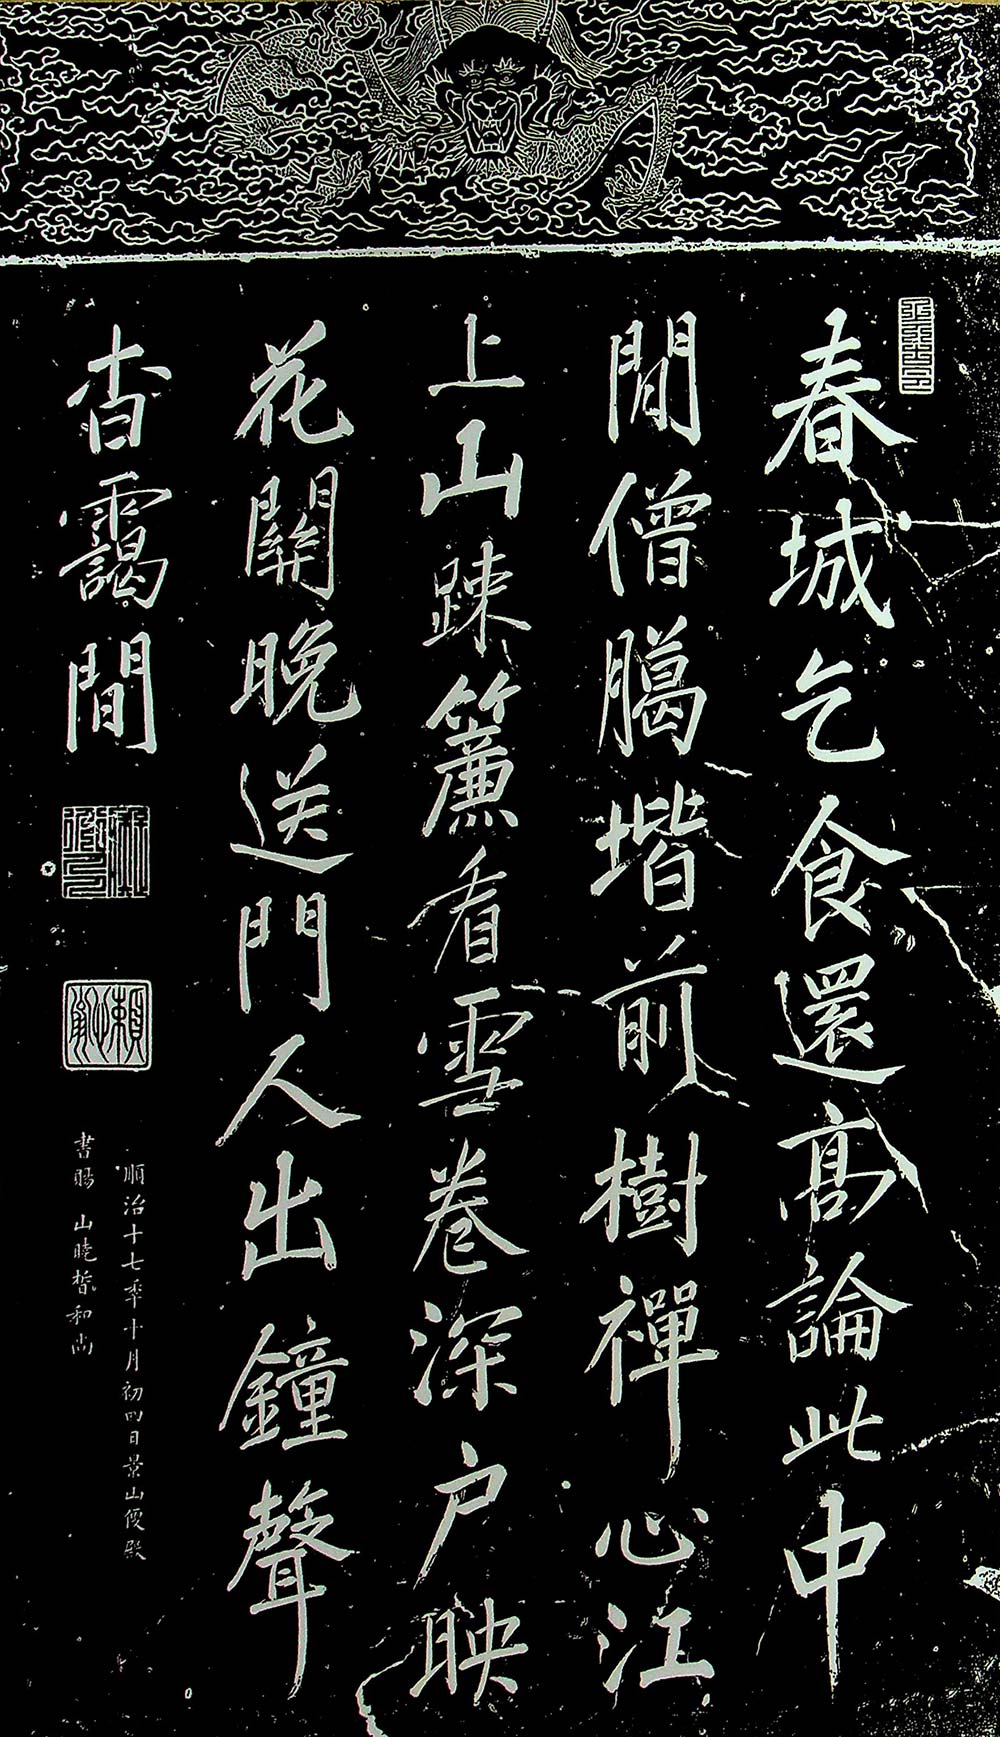 春城乞食還髙論此中
閒僧臈堦前樹禪心江
上山踈簾看雪卷深户映
花關晚送門人出鐘聲
杳靄間
順治十七秊十月初四日景山便殿
書賜 山曉晳和尚